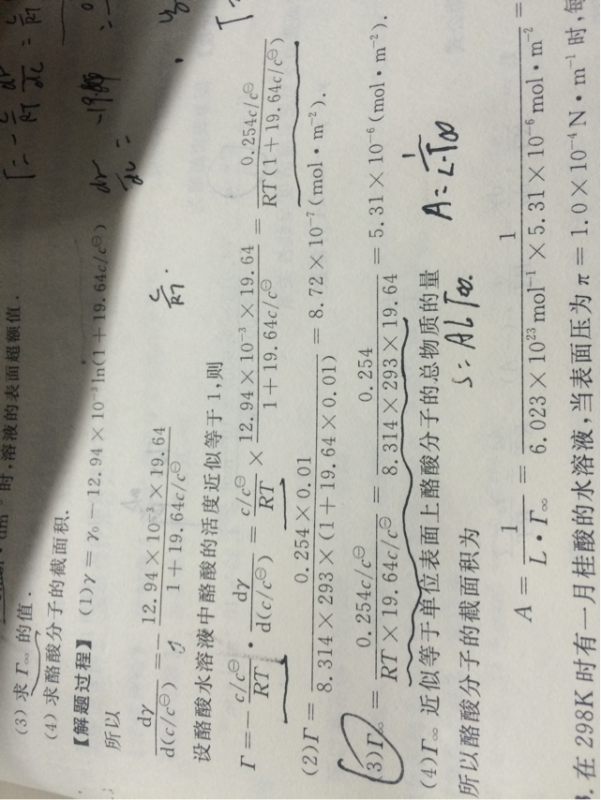 时,溶液的表面超额值.
(3) 求 Γ∞ 的值.
(4) 求酪酸分子的截面积.
【解题过程】 (1) γ = γ₀ − 12.94 × 10⁻³ ln(1 + 19.64c/c⊖)
所以
dγ/d(c/c⊖) = − (12.94 × 10⁻³ × 19.64)/(1 + 19.64c/c⊖)
设酪酸水溶液中酪酸的活度近似等于 1,则
Γ = − (c/c⊖)/RT · dγ/d(c/c⊖) = (c/c⊖)/RT × (12.94 × 10⁻³ × 19.64)/(1 + 19.64c/c⊖) = (0.254c/c⊖)/(RT(1 + 19.64c/c⊖))
(2) Γ = (0.254 × 0.01)/(8.314 × 293 × (1 + 19.64 × 0.01)) = 8.72 × 10⁻⁷ (mol · m⁻²).
(3) Γ∞ = (0.254c/c⊖)/(RT × 19.64c/c⊖) = 0.254/(8.314 × 293 × 19.64) = 5.31 × 10⁻⁶ (mol · m⁻²).
(4) Γ∞ 近似等于单位表面上酪酸分子的总物质的量
A = 1/(L·Γ∞)
S = ALΓ∞.
所以酪酸分子的截面积为
A = 1/(L · Γ∞) = 1/(6.023 × 10²³ mol⁻¹ × 5.31 × 10⁻⁶ mol · m⁻²) =
. 在 298K 时有一月桂酸的水溶液,当表面压为 π = 1.0 × 10⁻⁴ N · m⁻¹ 时,每